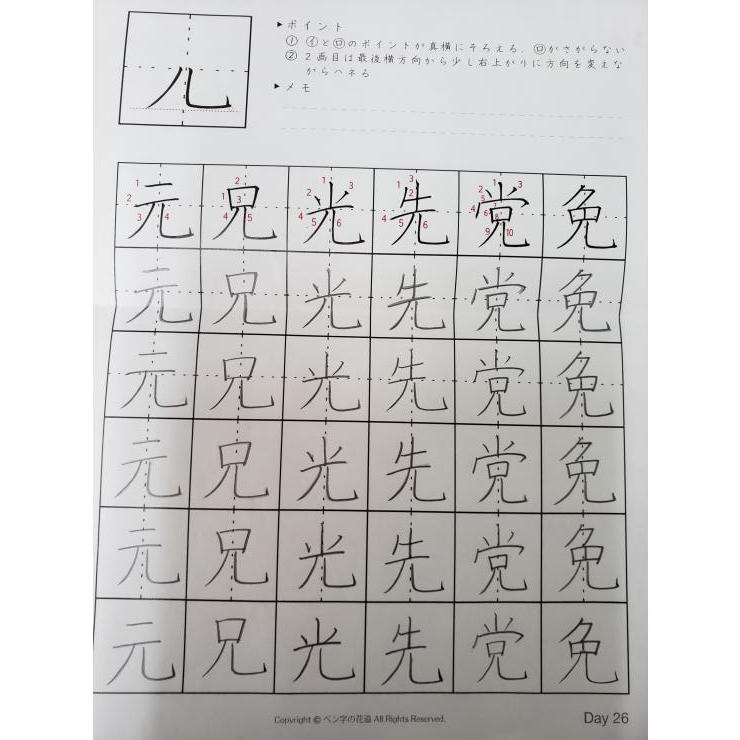 儿
▶ポイント
① ㋑と㋺のポイントが真横にそろえる。㋺がさがらない
② 2画目は最後横方向から少し右上がりに方向を変えな
がらハネる
▶メモ
元 兄 光 先 党 免
元 兄 光 先 党 免
元 兄 光 先 党 免
元 兄 光 先 党 免
元 兄 光 先 党 免
元 兄 光 先 党 免
Copyright © ペン字の花道 All Rights Reserved.
Day 26